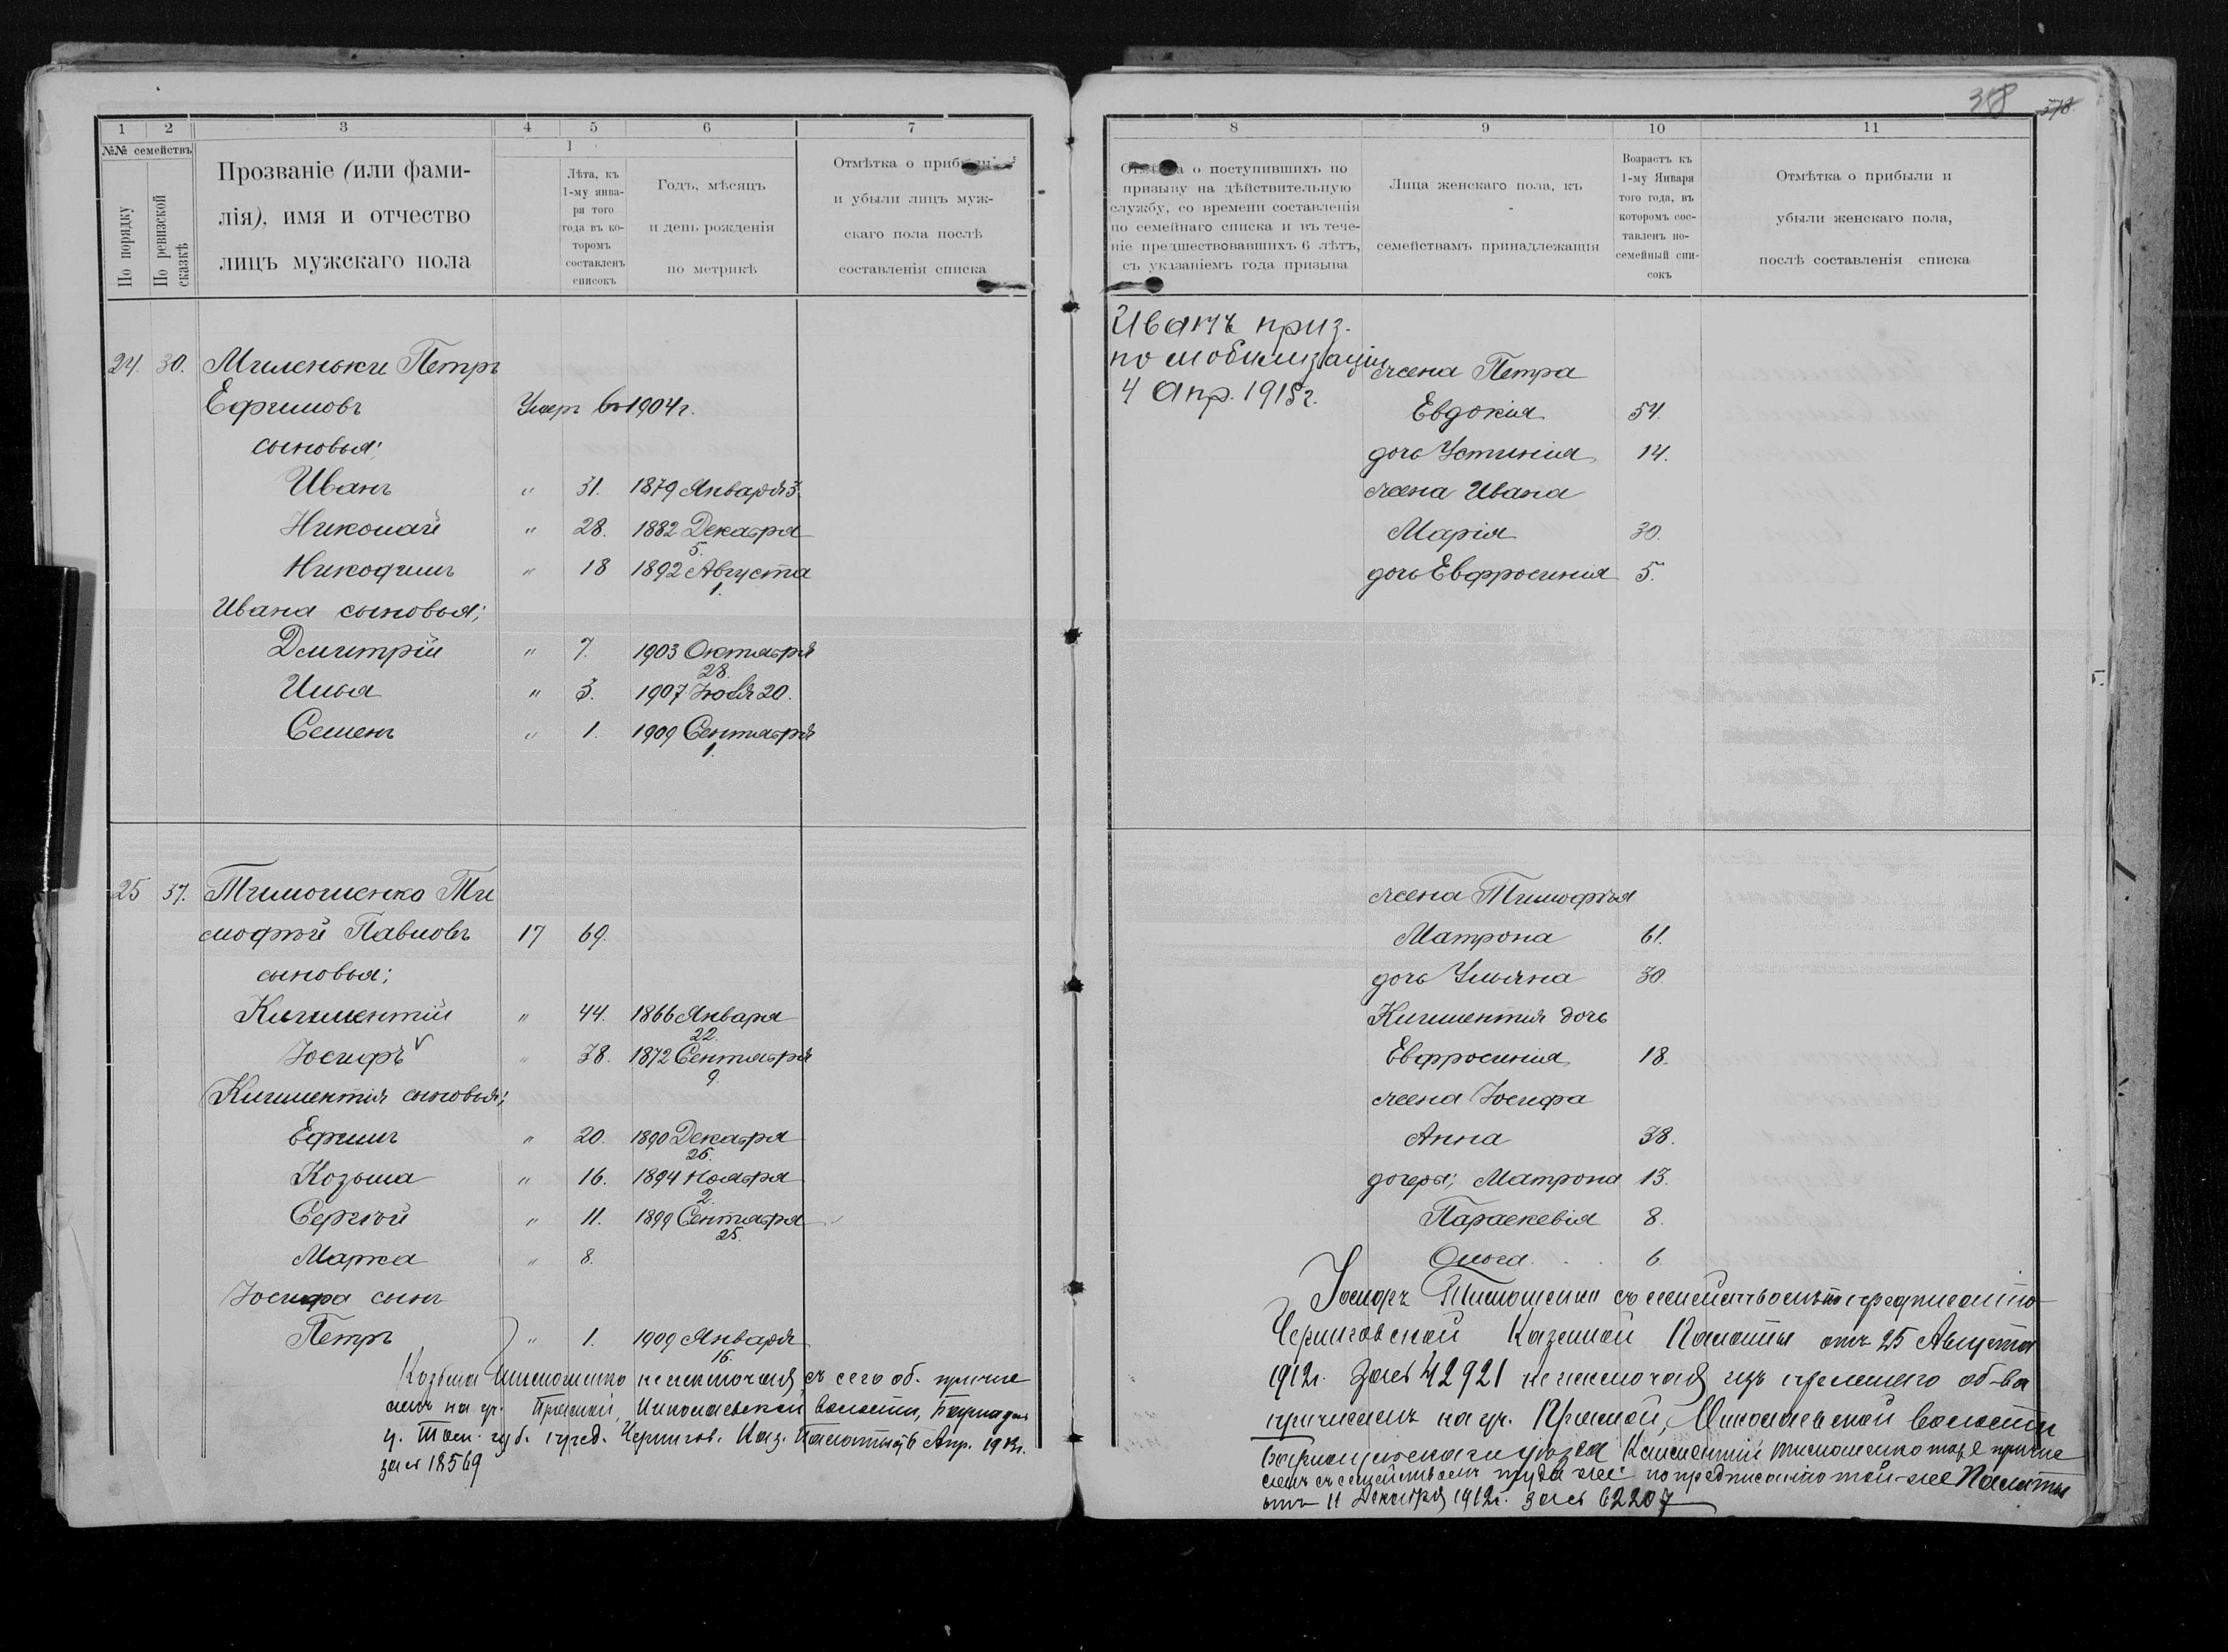 1 2 3 4 5 6 7
№№ семействъ
По порядку
По ревизской сказкѣ
Прозваніе (или фами-
лія), имя и отчество
лицъ мужскаго пола
1
Лѣта, къ
1-му янва-
ря того
года въ ко-
торомъ
составленъ
списокъ
Годъ, мѣсяцъ
и день рожденія
по метрикѣ
Отмѣтка о
и убыли лицъ муж-
скаго пола послѣ
составленія списка
24. 30. Миленьки Петръ
Ефимовъ Умеръ въ 1904 г.
сыновья;
Иванъ " 31. 1879 Января 3.
Николай " 28. 1882 Декабря
5.
Никодимъ " 18 1892 Августа
1.
Ивана сыновья;
Дмитрій " 7. 1903 Октября
28.
Илья " 3. 1907 20.
Семенъ " 1. 1909 Сентября
1.
25 37. Тимошенко Ти
мофѣй Павловъ 17 69.
сыновья;
Климентій " 44. 1866 Января
22.
Іосифъ " 38. 1872 Сентября
9.
Климентія сыновья;
Ефимъ " 20. 1890 Декабря
26.
Козьма " 16. 1894 Ноября
2.
Сергѣй " 11. 1899 Сентября
25.
Марка " 8.
Іосифа сынъ
Петръ " 1. 1909 Января
16.
Козьма Тимошенко не исключая съ сего об. причис
ленъ на уч. Прямой, Николаевской волости,
у. Том. губ. пред. Чернигов. Каз. Палаты Апр. 1913г.
за № 18569
318 378.
8 9 10 11
о поступившихъ по
призыву на дѣйствительную
службу, со времени составленія
по семейнаго списка и въ тече-
ніе предшествовавшихъ 6 лѣтъ,
съ указаніемъ года призыва
Лица женскаго пола, къ
семействамъ принадлежащія
Возрастъ къ
1-му Января
того года, въ
которомъ сос-
тавленъ по-
семейный спи-
сокъ
Отмѣтка о прибыли и
убыли женскаго пола,
послѣ составленія списка
Иванъ приз.
по мобилизаціи
4 Апр. 1915 г.
жена Петра
Евдокія 54.
дочь Устинія 14.
жена Ивана
Марія 30.
дочь Евфросинія 5.
жена Тимофѣя
Матрона 61.
дочь Ульяна 30.
Климентія дочь
Евфросинія 18.
жена Іосифа
Анна 38.
дочеры; Матрона 13.
Параскевія 8.
Ольга 6.
Іосифъ Тимошенко съ семействомъ по предписанію
Черниговской Казенной Палаты отъ 25 Августа
1912г. за № 42921 не исключая изъ прежняго об-ва
причисленъ на уч. Прямой, Николаевской волости
Барнаульскаго уѣзда Климентій Тимошенко тоже причис
ленъ съ семействомъ туда же по предписанію той-же Палаты
отъ 11 Декабря 1912г. за № 62207